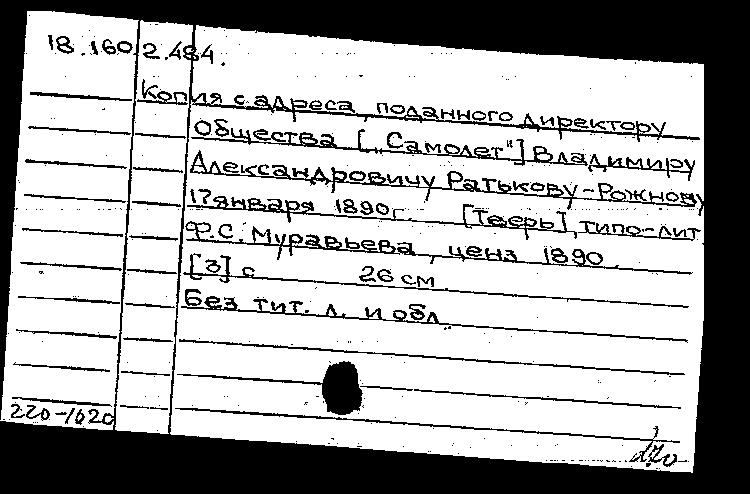 18.160.2.484.
Копия с адреса, поданного директору
Общества [„Самолет"] Владимиру
Александровичу Ратькову-Рожнову
17 января 1890 г. [Тверь], типо-лит.
Ф.С. Муравьева, ценз 1890.
[3] с 26 см.
Без тит. л. и обл.
220-1620